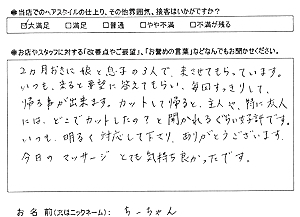 ●当店でのヘアスタイルの仕上り、その他雰囲気、接客はいかがですか?
☑大満足 □満足 □普通 □やや不満 □不満が残る
●お店やスタッフに対する「改善点やご要望」、「お誉めの言葉」などなんでもお聞かせください。
2カ月おきに娘と息子の3人で、来させてもらっています。
いつも、まると要望に答えてもらい、毎回すっきりして、
帰る事が出来ます。カットして帰ると、主人や、特に友人
には、どこでカットしたの?と聞かれるぐらい好評です。
いつも、明るく対応して下さり、ありがとうございます。
今日のマッサージとても気持ち良かったです。
お名前(又はニックネーム): ちーちゃん